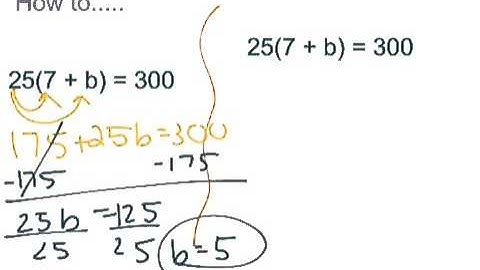 How to.....
25(7 + b) = 300
25(7 + b) = 300
175+25b=300
-175 -175
25b = 125
25 25 b=5